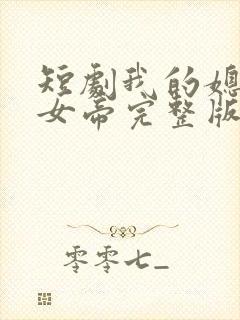 短剧我的媳
女帝完整版
零零七_